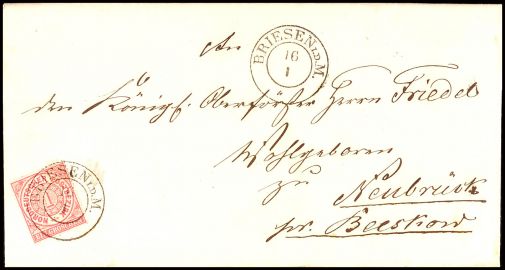 An
BRIESEN i.D.M.
16
1
den Königl. Oberförster Herrn Friedel
Wohlgeboren
zu
Neubrück
pr. Beeskow
BRIESEN i.D.M.